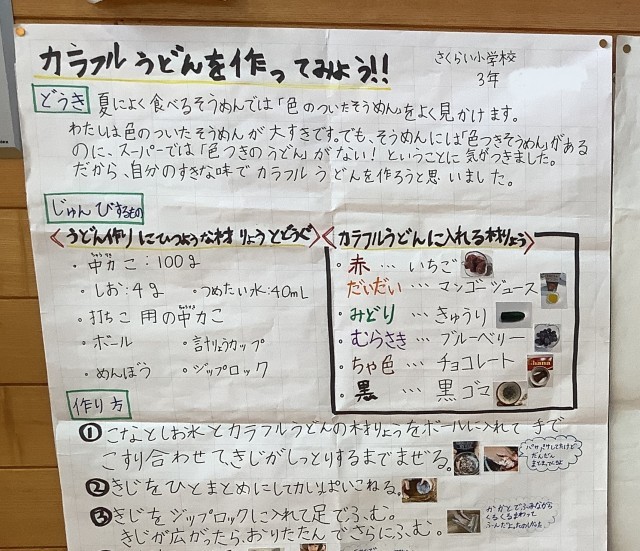 カラフルうどんを作ってみよう!!
さくらい小学校
3年
どうき
夏によく食べるそうめんでは「色のついたそうめん」をよく見かけます。
わたしは色のついたそうめんが大すきです。でも、そうめんには「色つきそうめん」がある
のに、スーパーでは「色つきのうどん」がない!ということに気がつきました。
だから、自分のすきな味でカラフルうどんを作ろうと思いました。
じゅんびするもの
《うどん作りにひつような材りょうとどうぐ》
・中力こ:100g
・しお:4g ・つめたい水:40mL
・打ちこ用の中力こ
・ボール ・計りょうカップ
・めんぼう ・ジップロック
《カラフルうどんに入れる材りょう》
・赤…いちご
だいだい…マンゴージュース
・みどり…きゅうり
・むらさき…ブルーベリー
・ちゃ色…チョコレート
・黒…黒ゴマ
作り方
①こなとしお水とカラフルうどんの材りょうをボールに入れて手で
こすり合わせて、きじがしっとりするまでまぜる。
②きじをひとまとめにしてかいっぱいこねる。
③きじをジップロックに入れて足でふむ。
きじが広がったら、おりたたんでさらにふむ。
かかとでふみながら
くるくるまわって